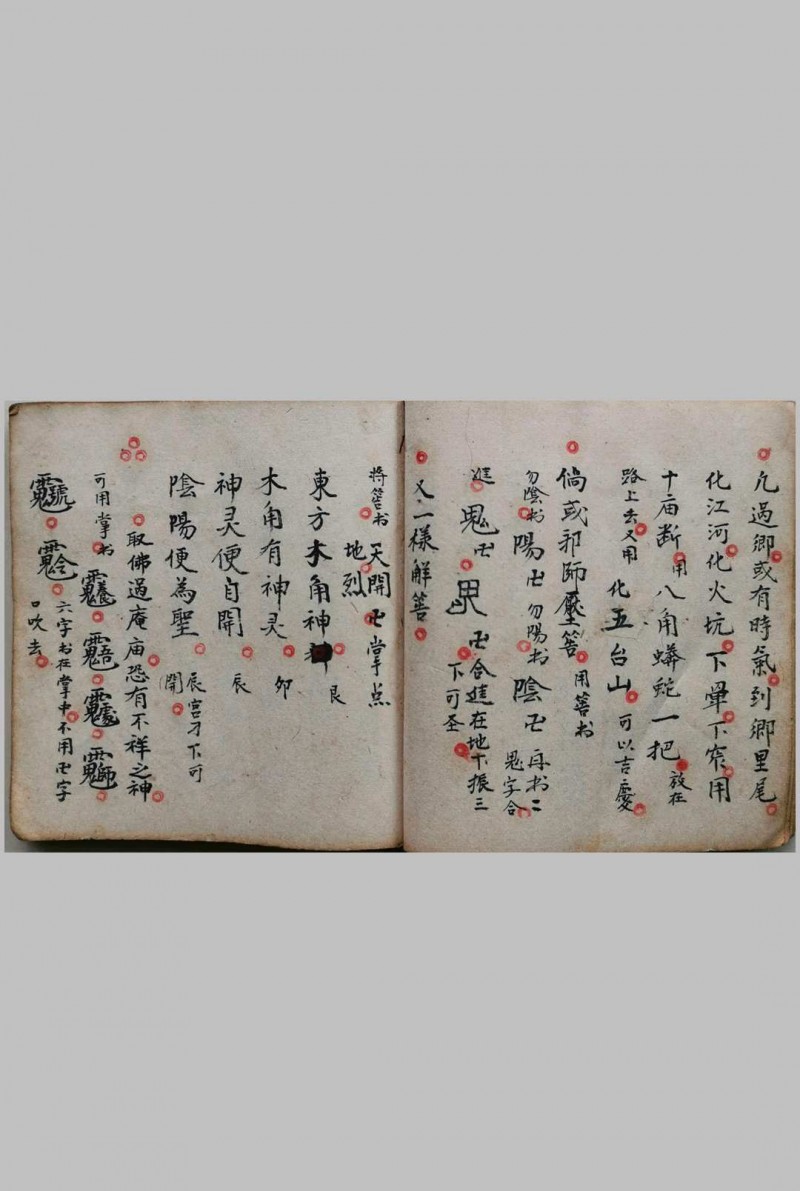 凢過鄉或有時氣到鄉里尾
化江河化火坑下暈下窄用
十庙断用八角蟒蛇一把放在
路上去又用化五台山可以吉慶
倘或邪師壓筶用筶书
勿陰书陽卍勿陽书陰卍再书二鬼字合
卍卍合進在地下振三下可圣
又一樣解筶
将筶书天開地烈卍掌点
東方木角神艮
木角有神灵卯
神灵便自開辰
陰陽便為聖辰宫才下可開
取佛過庵庙恐有不祥之神
可用掌书
六字书在掌中不用卍字
口吹去